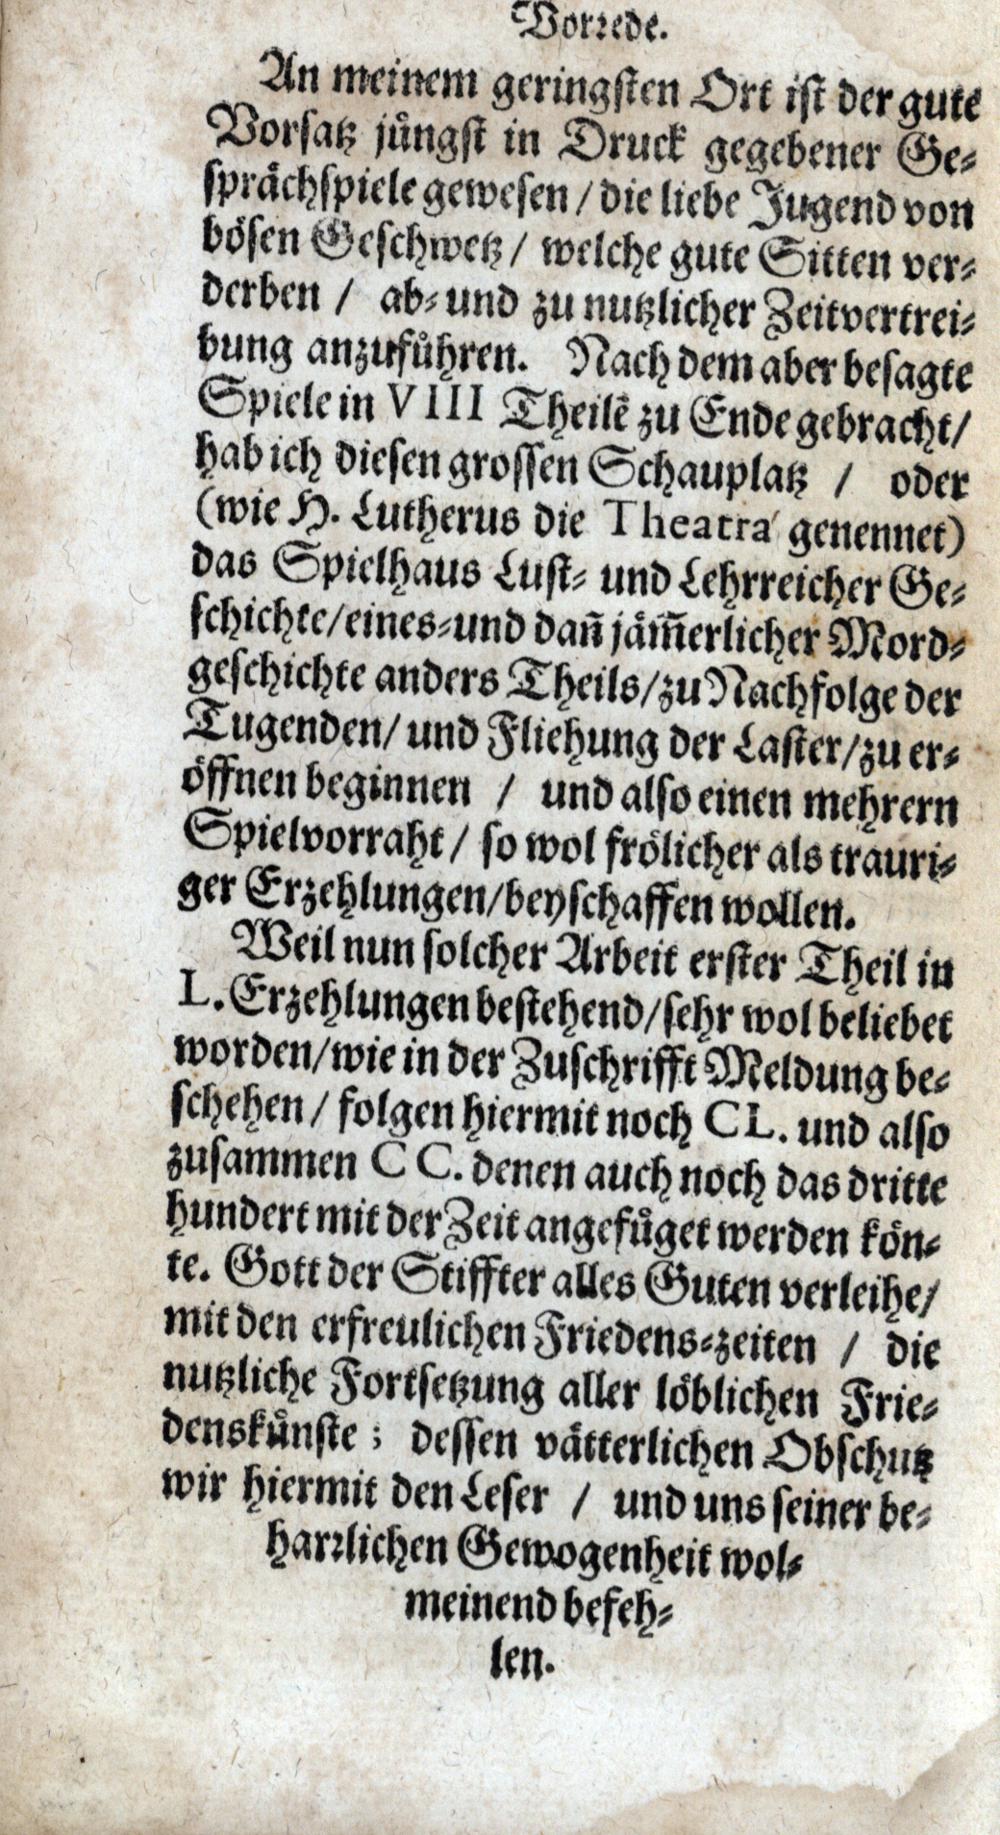 Vorꝛede.
An meinem geringſten Ort iſt der gute
Vorſatz juͤngſt in Druck gegebener Ge⸗
ſpraͤchſpiele geweſen / die liebe Jugend von
boͤſen Geſchwetz / welche gute Sitten ver⸗
derben / ab⸗ und zu nutzlicher Zeitvertrei⸗
bung anzufuͤhren. Nach dem aber beſagte
Spiele in VIII Theilẽ zu Ende gebracht /
hab ich dieſen groſſen Schauplatz / oder
(wie H. Lutherus die Theatra genennet)
das Spielhaus Luſt⸗ und Lehrreicher Ge⸗
ſchichte / eines⸗ und dañ jaͤm̃erlicher Mord⸗
geſchichte anders Theils / zu Nachfolge der
Tugenden / und Fliehung der Laſter / zu er⸗
oͤffnen beginnen / und alſo einen mehrern
Spielvorraht / ſo wol froͤlicher als trauri⸗
ger Erzehlungen / beyſchaffen wollen.
Weil nun ſolcher Arbeit erſter Theil in
L. Erzehlungen beſtehend / ſehr wol beliebet
worden / wie in der Zuſchrifft Meldung be⸗
ſchehen / folgen hiermit noch CL. und alſo
zuſammen CC. denen auch noch das dritte
hundert mit der Zeit angefuͤget werden koͤn⸗
te. Gott der Stiffter alles Guten verleihe /
mit den erfreulichen Friedens⸗zeiten / die
nutzliche Fortſetzung aller loͤblichen Frie⸗
denskuͤnſte; deſſen vaͤtterlichen Obſchutz
wir hiermit den Leſer / und uns ſeiner be⸗
harꝛlichen Gewogenheit wol⸗
meinend befeh⸗
len.